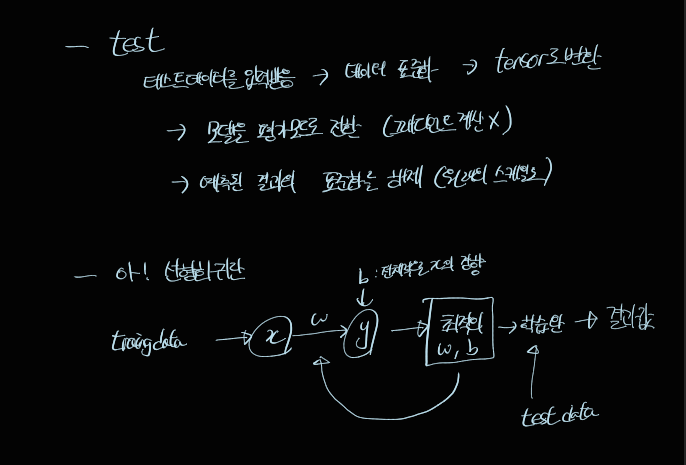 — test
테스트데이터를 입력받음 → 데이터 표준화 → tensor로 변환
→ 모델을 평가모드로 전환 (그래디언트 계산 X)
→ 예측된 결과의 표준화를 해제 (원래의 스케일로)
— 아! 선형회귀란
b : 전체적인 x의 경향
traing data → x w → y → 최적의 w, b → 학습완 → 결과값
test data